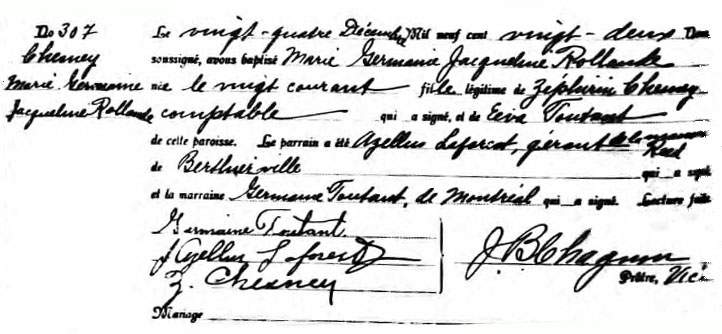 No 307
Chesney
Marie Germaine
Jacqueline Rollande
Le vingt-quatre Décembre Mil neuf cent vingt-deux Nous
soussigné, avons baptisé Marie Germaine Jacqueline Rollande
née le vingt courant fille légitime de Zéphirin Chesney
comptable qui a signé, et de Eéva Toutant
de cette paroisse. Le parrain a été Azellus Laforest, gérant de la maison
Reed
de Berthierville qui a signé
et la marraine Germaine Toutant, de Montréal qui a signé. Lecture faite
Germaine Toutant
J Azellus Laforest
Z. Chesney
J. B. Chagnon
Prêtre, Vic.
Mariage